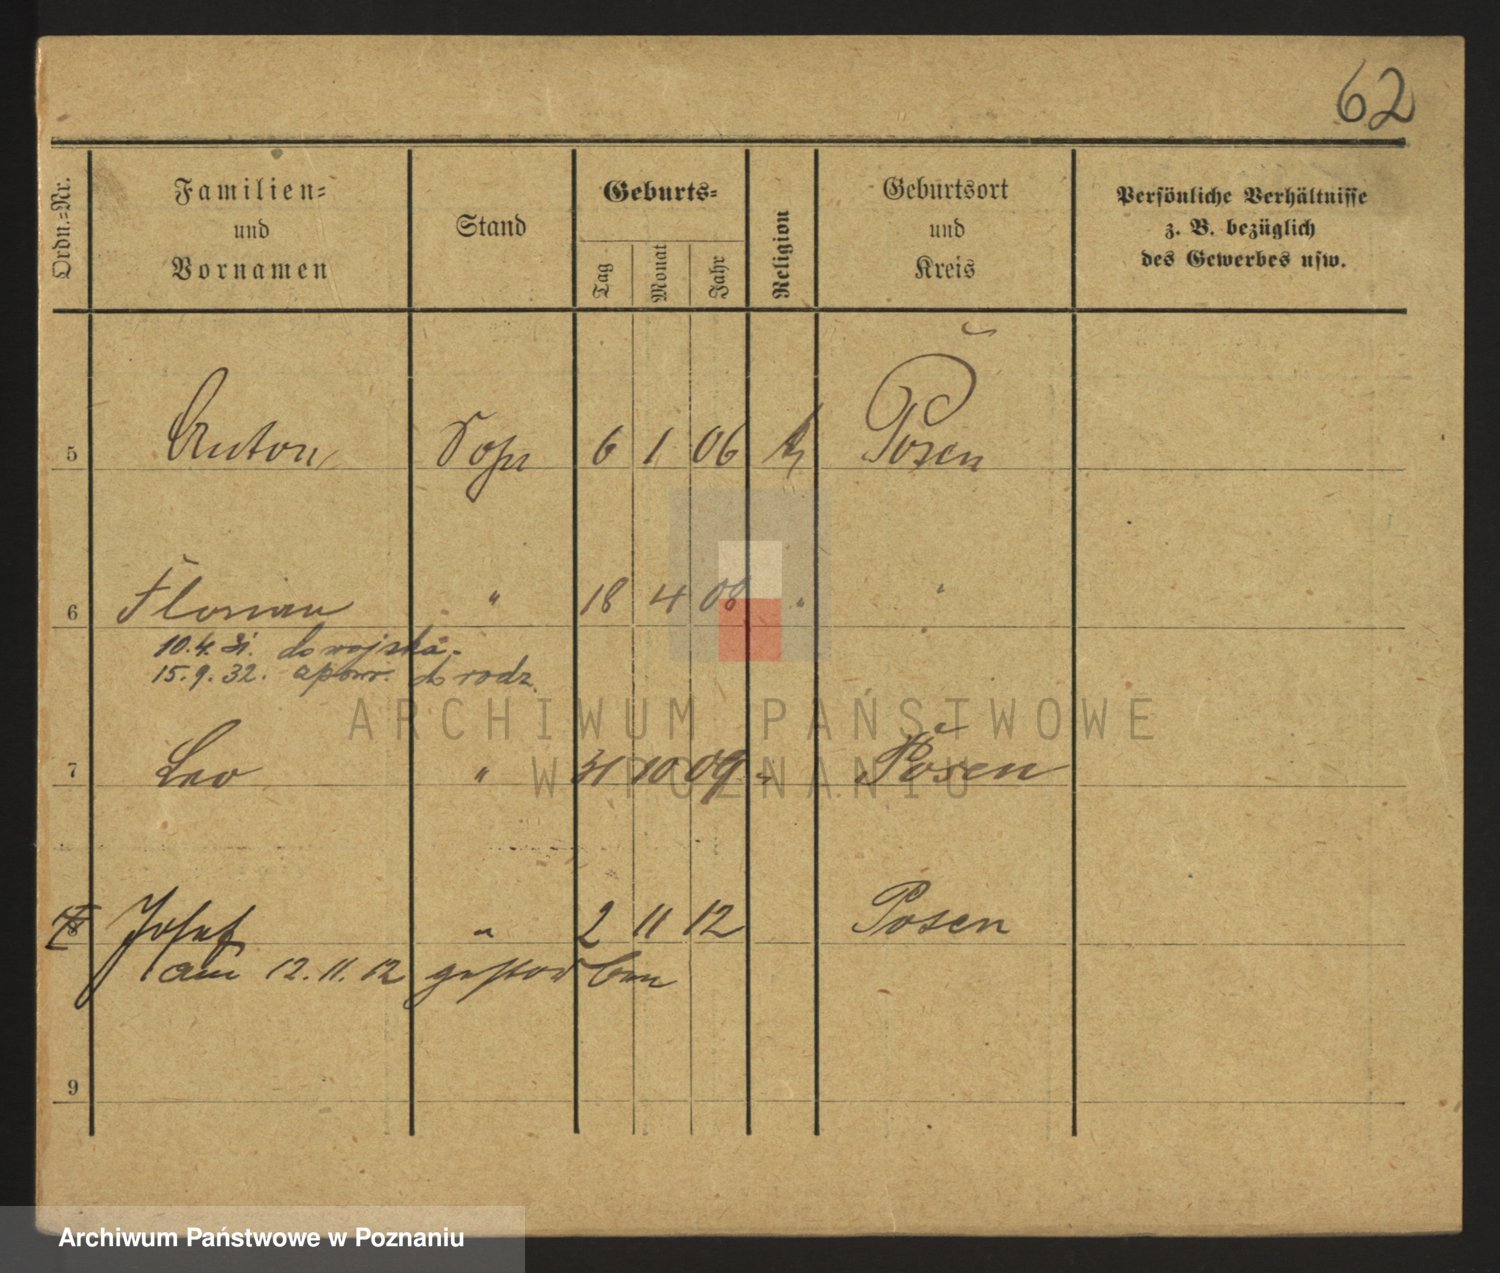 62
Ordn.=Nr.
Familien=
und
Vornamen
Stand
Geburts=
Tag
Monat
Jahr
Religion
Geburtsort
und
Kreis
Persönliche Verhältnisse
z. B. bezüglich
des Gewerbes usw.
5 Anton 6 1 06 Posen
6 Florian " 18 4 08 " "
10.4.31. do wojska.
15.9.32. z powr. do rodz.
7 Leo " 31 10 09 " Posen
8 Josef " 2 11 12 Posen
am 12.11.12 gestorben
9
ARCHIWUM PAŃSTWOWE
W POZNANIU
Archiwum Państwowe w Poznaniu